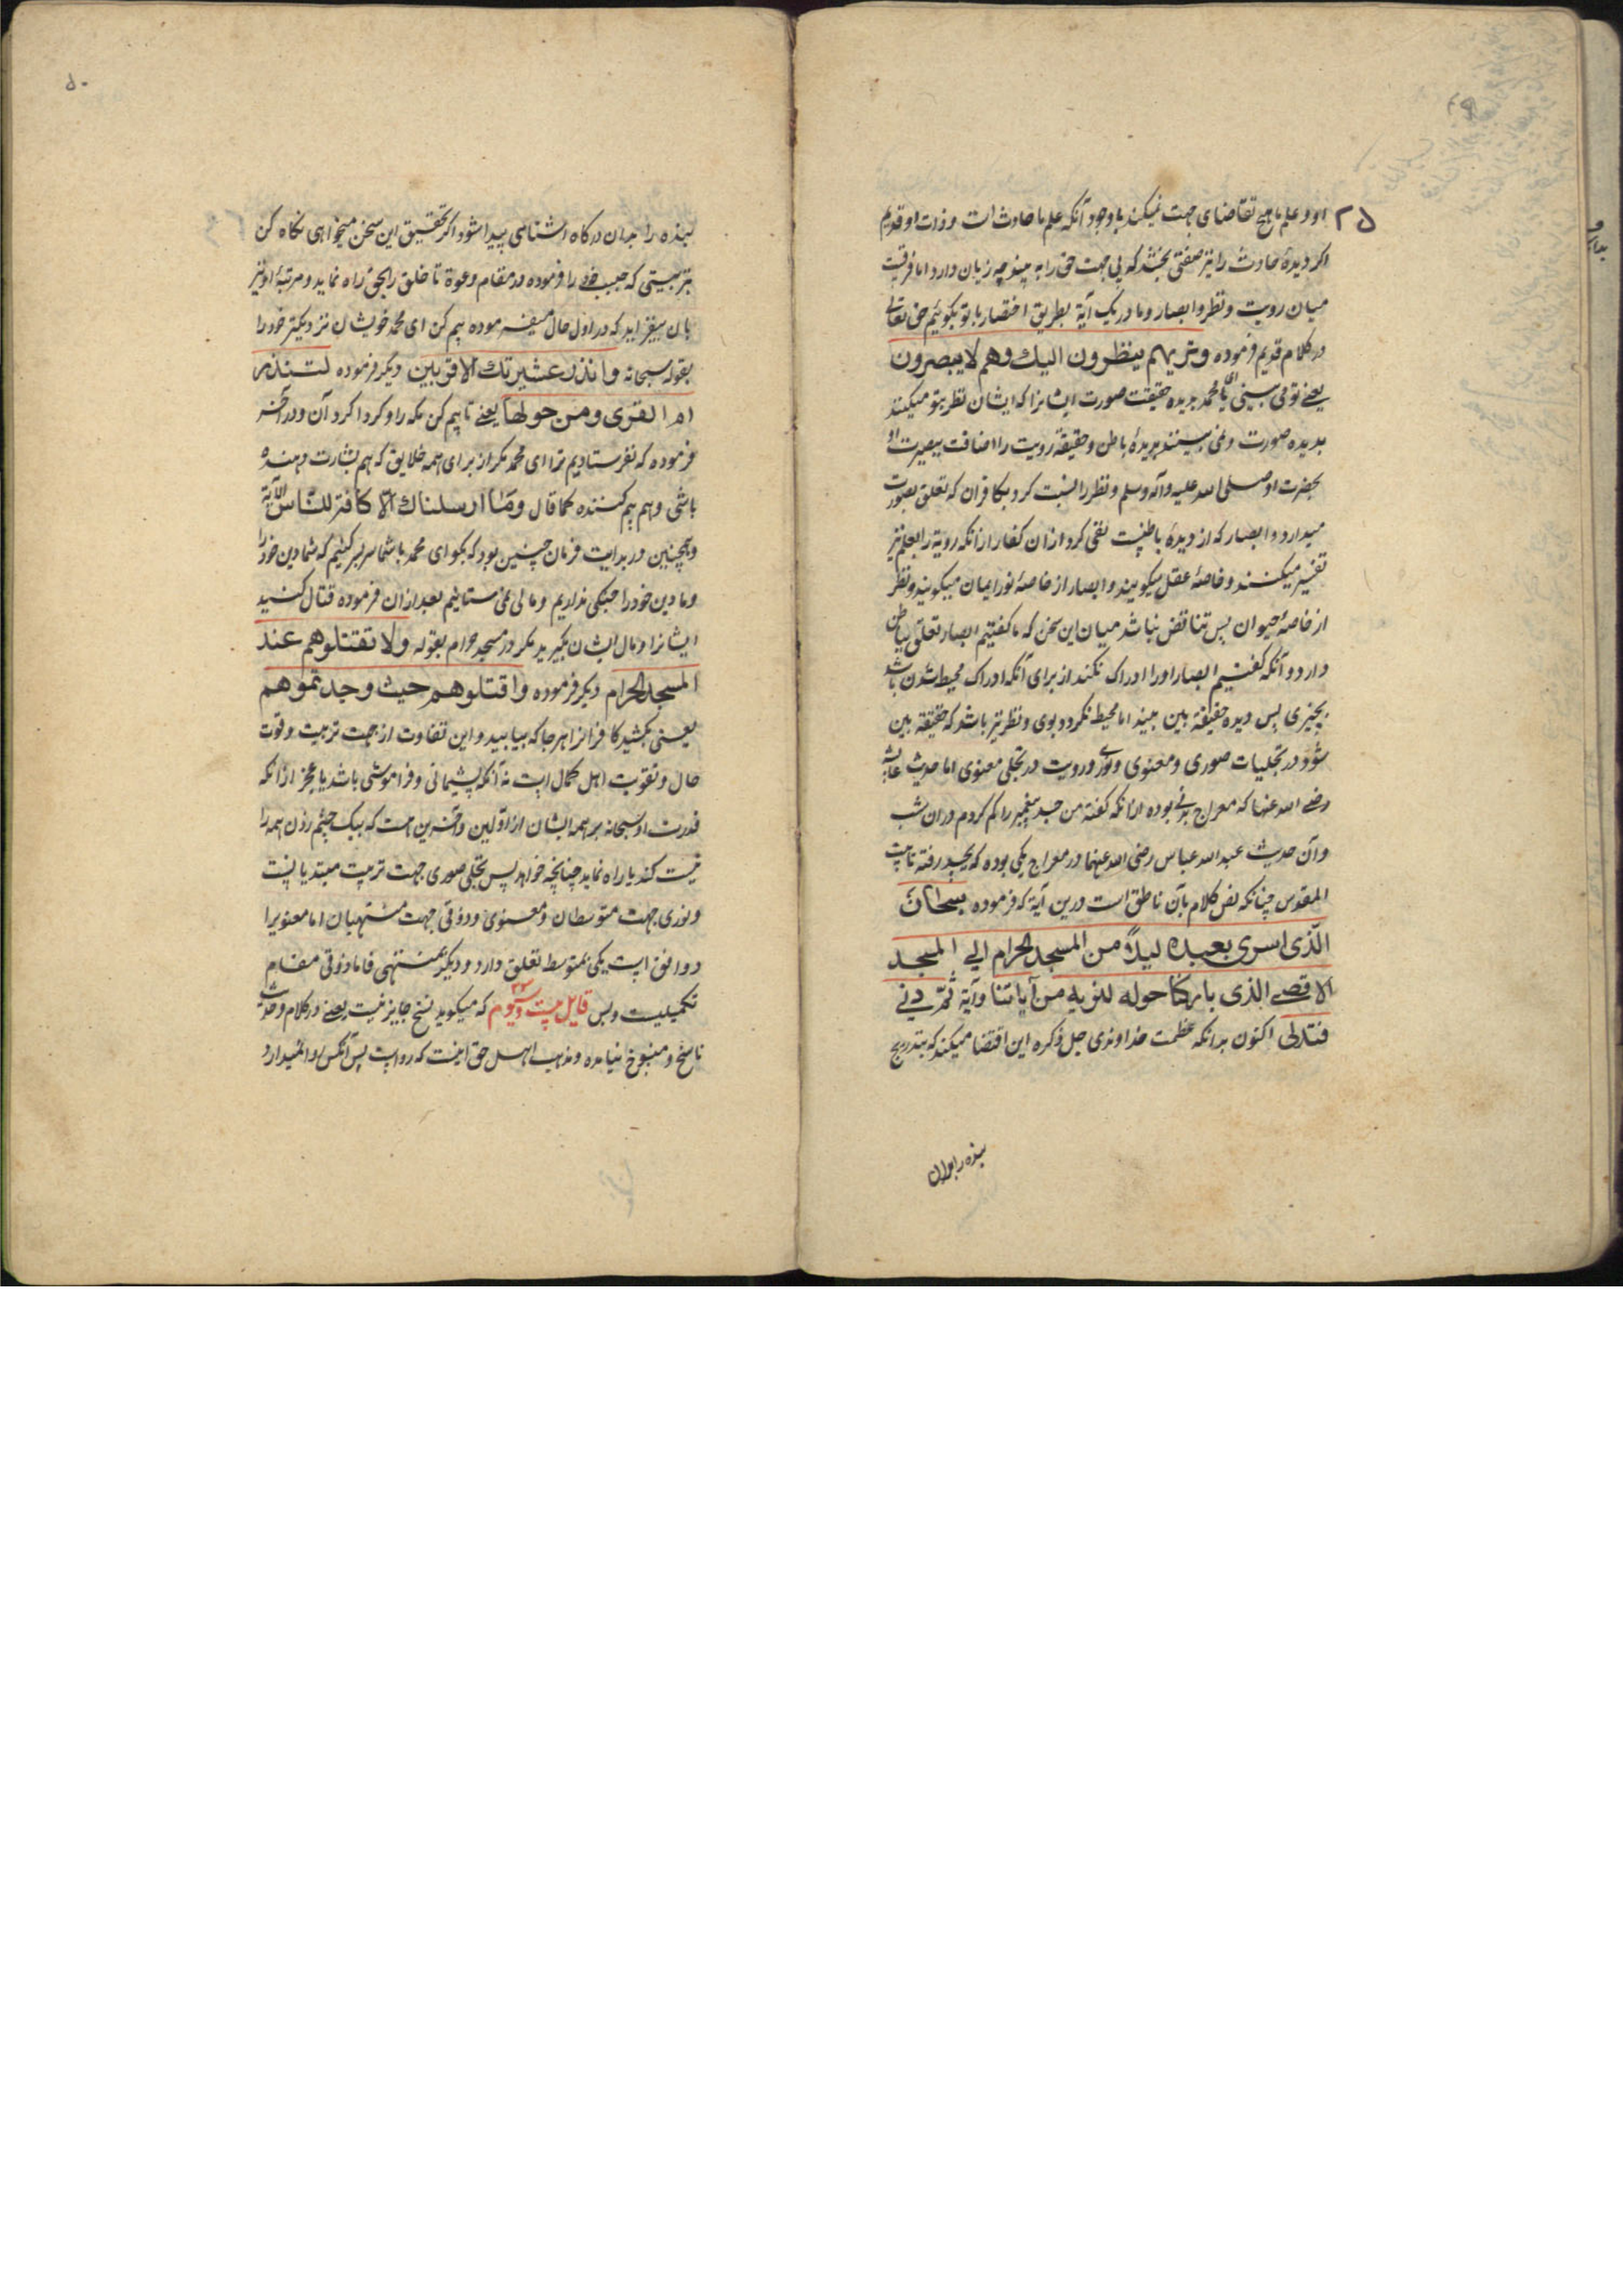 ۲۵
او و علم ما هیچ تقاضای جهت نمیکند با وجود آنکه علم ما حادث است و ذات او قدیم
اکر دیدهٔ حادث را نیز صفتی بخشد که بی جهت حق را به بیند چه زیان دارد اما فرقیست
میان رویت و نظر و ابصار و ما در یک آیة بطریق اختصار با تو بکوئیم حق تعالی
در کلام قدیم فرموده وتریهم ینظرون الیك وهم لا یبصرون
یعنے تو می بینی ای محمد بدیده حقیقت صورت ایشانرا که ایشان نظر بتو میکنند
بدیده صورت و نمی بینند بدیدهٔ باطن و حقیقة رویت را اضافت ببصیرت او
بحضرت او صلی الله علیه وآله وسلم و نظر را نسبت کرد بکافران که تعلق بصورت
میدارد و ابصار که از دیدهٔ باطنیست نفی کرد از ان کفار ازانکه رویة را بعلم نیز
تفسیر میکنند و خاصهٔ عقل میکویند و ابصار از خاصهٔ نور ایمان میکویند و نظر
از خاصهٔ حیوان پس تناقض نباشد میان این سخن که ما کفتیم ابصار تعلق بباطن
دارد و آنکه کفتیم ابصار او را ادراک نکند از برای آنکه ادراک محیط شدن باشد
بچیزی پس دیده حقیقة بین بیند اما محیط نکردد بوی و نظر نیز باشد که حقیقة بین
شود در تجلیات صوری و معنوی و نوری و رویت در تجلی معنوی اما حدیث عایشه
رضے الله عنها که معراج بدنے بوده ازانکه کفته من جسد پیغمبر را کم کردم دران شب
وآن حدیث عبد الله عباس رضی الله عنهما در معراج یکی بوده که بجسد رفته تا بیت
المقدس چنانکه نص کلام بآن ناطق است درین آیة که فرموده سبحان
الّذی اسری بعبده لیلاً من المسجد الحرام الی المسجد
الاقصے الذی بارکنا حوله لنریه من آیاتنا وآیة ثمّ دنے
فتدلی اکنون بدانکه عظمت خداوندی جل ذکره این اقتضا میکند که بتدریج
بنده را بدان
۵۰
بنده را بدان درکاه اشنائی پیدا شود اکر تحقیق این سخن میخواهی نکاه کن
بتربیتی که حبیب خود را فرموده در مقام دعوة تا خلق را بحق راه نماید و مرتبهٔ او نیز
بان بیفزاید که در اول حال میفرموده بیم کن ای محمد خویشان نزدیکتر خود را
بقوله سبحانه وانذر عشیرتك الاقربین دیکر فرموده لتنذر
ام القری ومن حولها یعنے تا بیم کن مکه را و کردا کرد آن و در آخر
فرموده که نفرستادیم ترا ای محمد مکر از برای همه خلایق که هم بشارت دهنده
باشی و هم بیم کننده کما قال ومَا ارسلناك الّا کافة للنّاس الآیة
و همچنین در بدایت فرمان چنین بود که بکو ای محمد با شما سر بسر کنیم که شما دین خود را
و ما دین خود را جنکی نداریم و مالی نمی ستانیم بعد ازان فرموده قتال کنید
ایشانرا و مال ایشان بکیرید مکر در مسجد حرام بقوله ولا تقتلوهم عند
المسجد الحرام دیکر فرموده واقتلوهم حیث وجدتموهم
یعنی بکشید کافرانرا هر جا که بیابید و این تفاوت از جهت تربیت و قوت
حال و تقویت اهل کمال است نه آنکه پشیمانی و فراموشی باشد یا عجز ازانکه
قدرت او سبحانه بر همه ایشان از اولین و آخرین هست که بیک چشم زدن همه را
نیست کند یا راه نماید چنانچه خواهد پس تجلی صوری جهت تربیت مبتدیانست
و نوری جهت متوسطان و معنوی و ذوقی جهت منتهیان اما معنویرا
دو افق است یکی بمتوسط تعلق دارد و دیکر بمنتهی فاما ذوقی مقام
تکمیلیست و بس قایل بیست و سیوم که میکوید نسخ جایز نیست یعنے در کلام و حدیث
ناسخ و منسوخ نیامده و مذهب اهل حق اینست که رواست پس آنکس روا نمیدارد